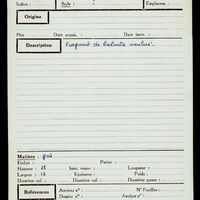 Indice : Style : Emplacem. :
Origine
Pays Date acquis. : Date inscr. :
Description Fragment de
Matière : grès
Enfant : Patine :
Hauteur : 18 haut. max. : Longueur :
Largeur : 13 Epaisseur : Poids :
Diamètre col. : Diamètre panse :
Références Anciens n° : N° Fouilles :
Dossier n° : Analyse n° :